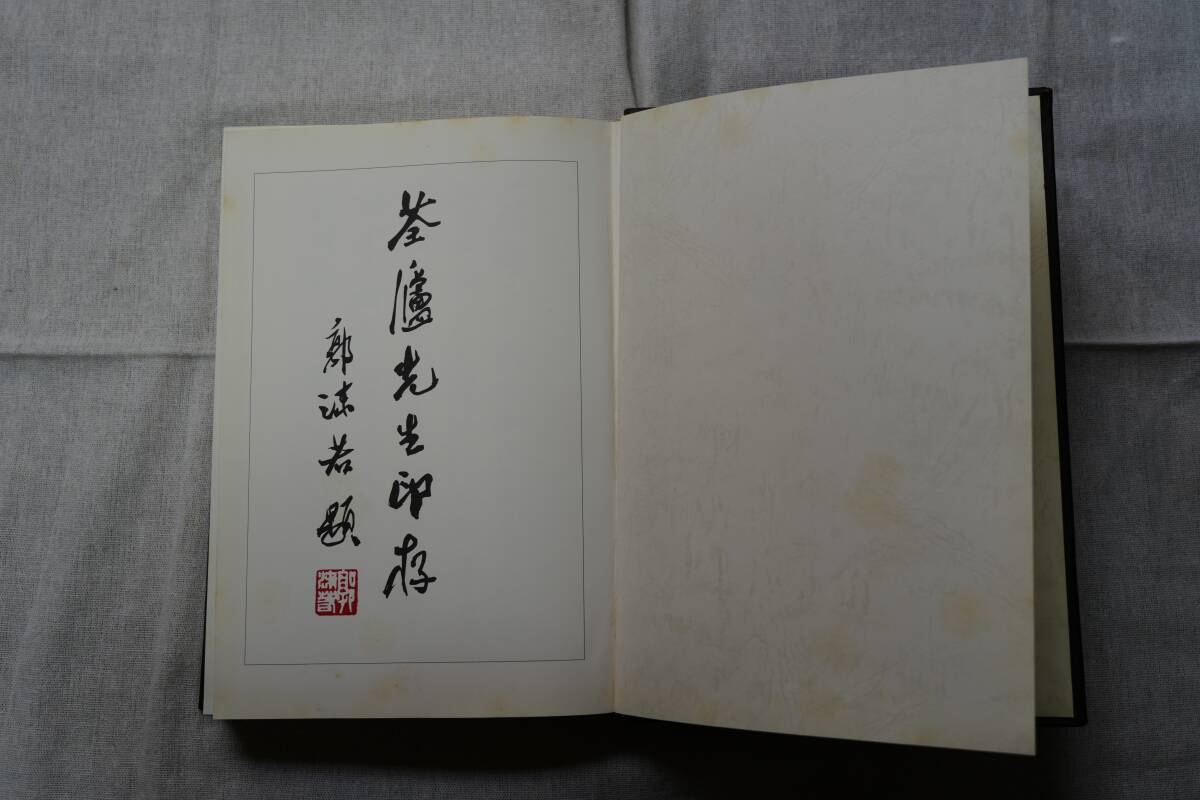 荃廬先生印存
郭沫若題
郭沫若